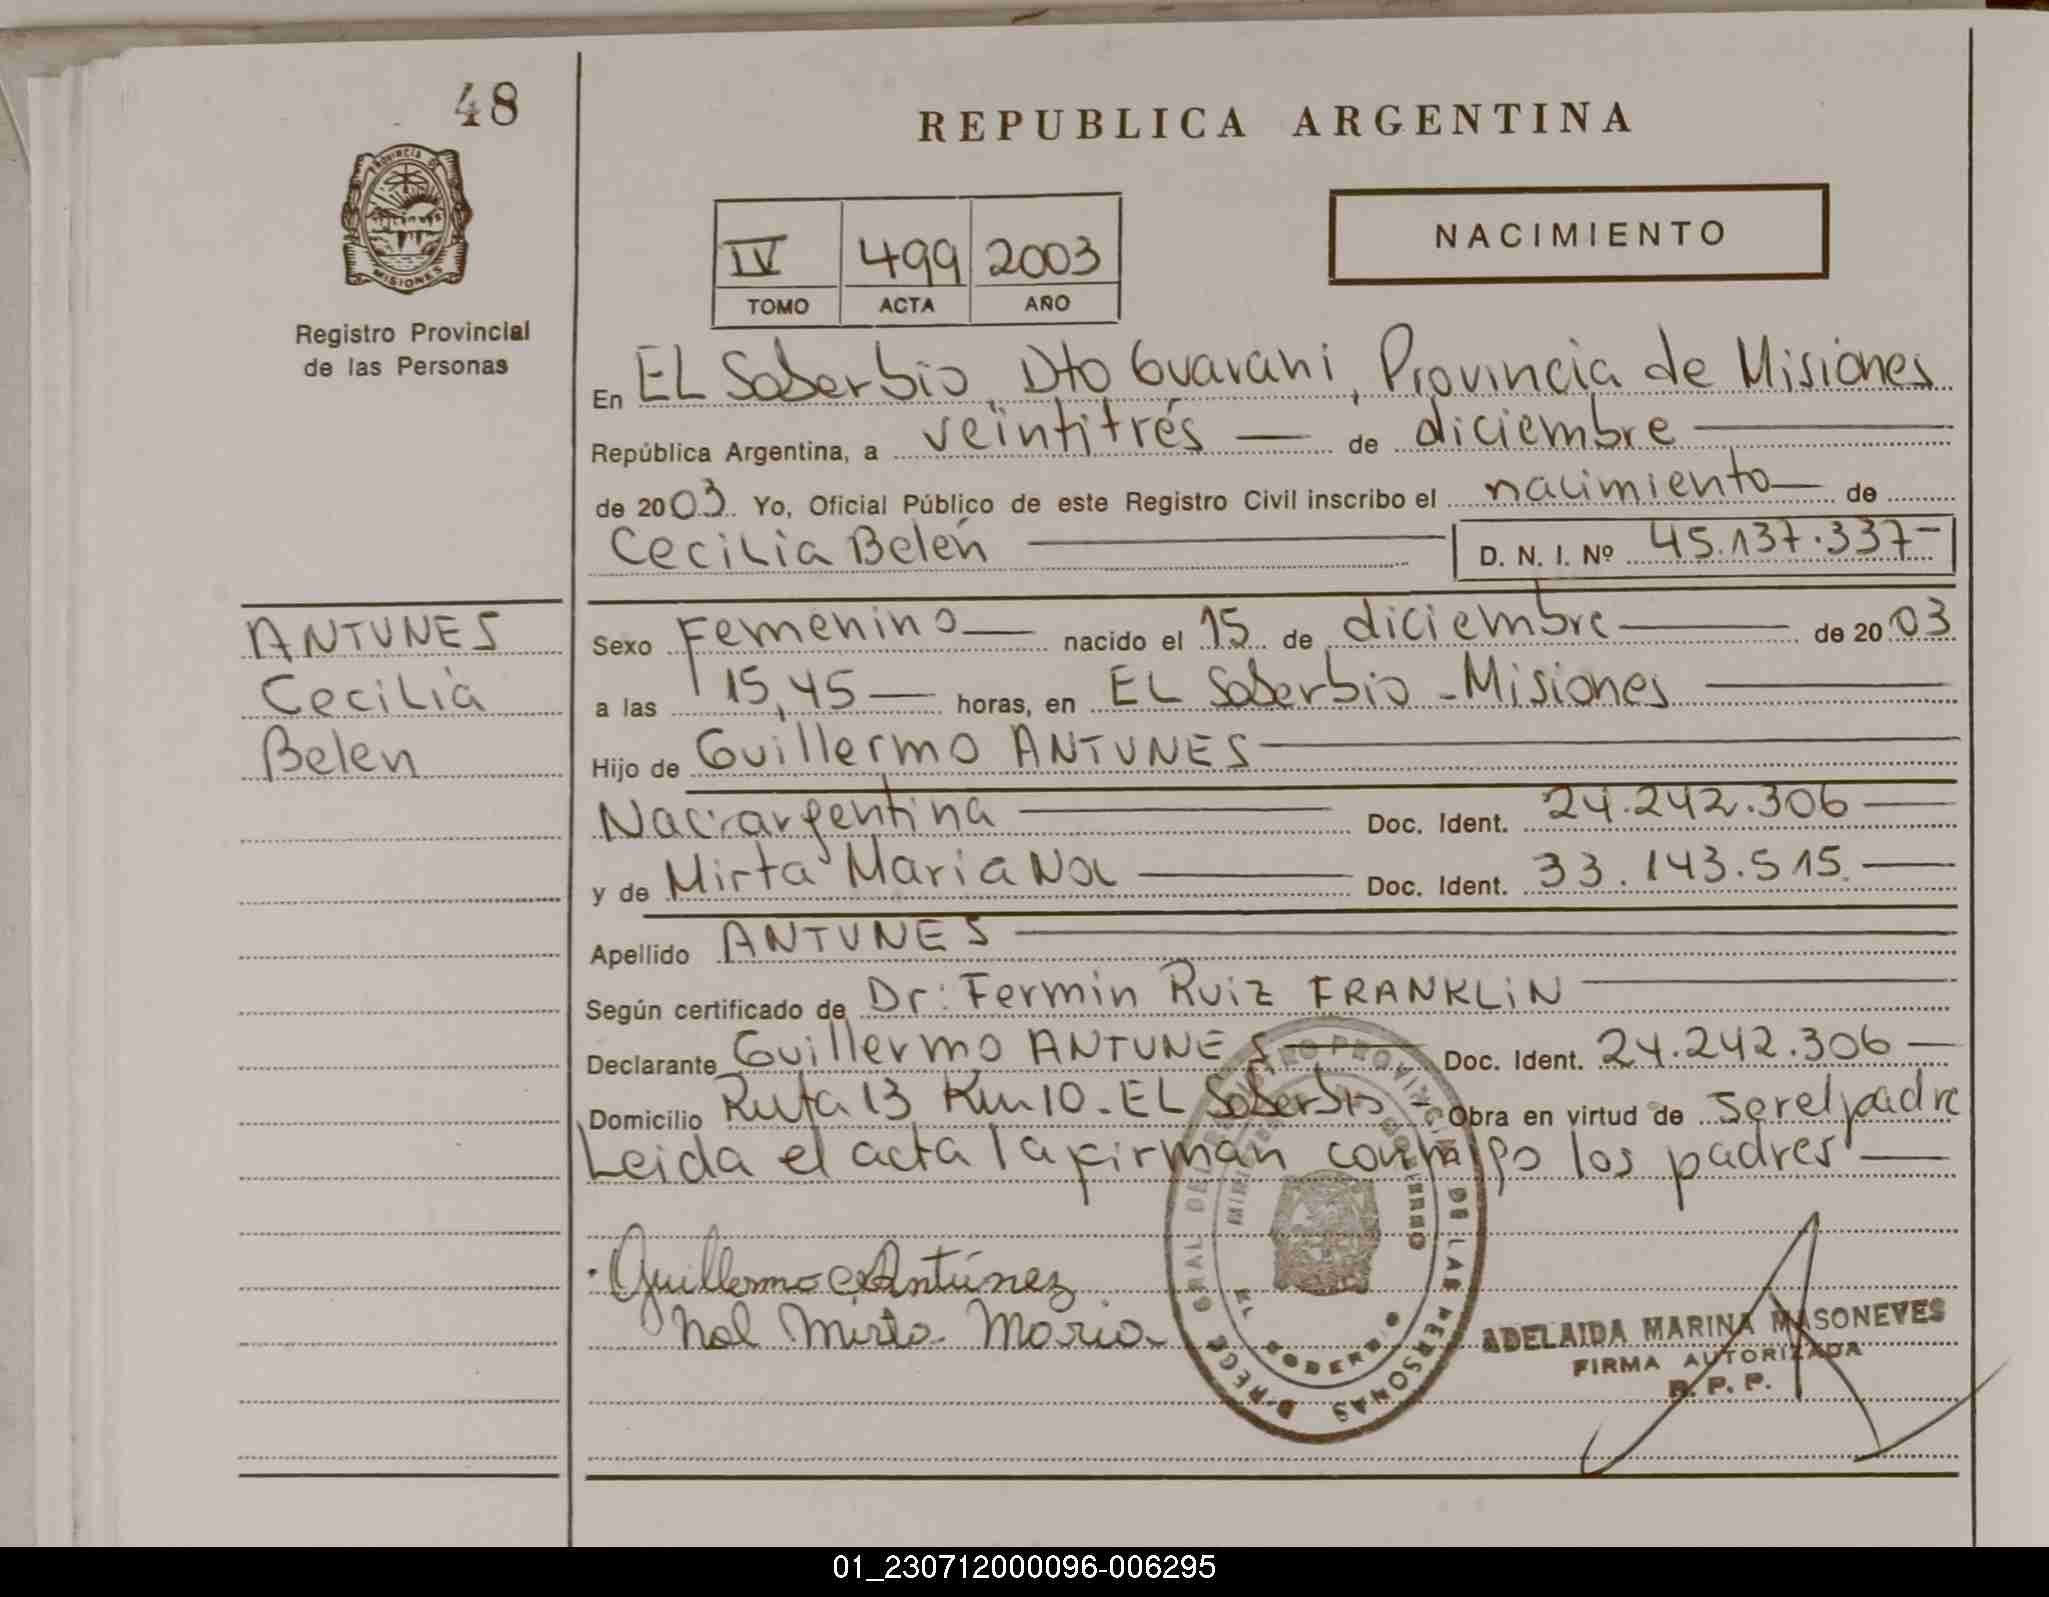 48
PROVINCIA DE
MISIONES
Registro Provincial
de las Personas
REPUBLICA ARGENTINA
IV 499 2003
TOMO ACTA AÑO
NACIMIENTO
En EL Soberbio, Dto Guaraní, Provincia de Misiones
República Argentina, a veintitrés — de diciembre —
de 2003. Yo, Oficial Público de este Registro Civil inscribo el nacimiento — de
Cecilia Belén — D. N. I. Nº 45.137.337-
ANTUNES
Cecilia
Belen
Sexo Femenino — nacido el 15 de diciembre — de 2003
a las 15,45 — horas, en EL Soberbio - Misiones —
Hijo de Guillermo ANTUNES —
Nac: argentina — Doc. Ident. 24.242.306 —
y de Mirta Maria Nol — Doc. Ident. 33.143.515. —
Apellido ANTUNES —
Según certificado de Dr: Fermin Ruiz FRANKLIN —
Declarante Guillermo ANTUNES — Doc. Ident. 24.242.306 —
Domicilio Ruta 13 Km 10 - EL Soberbio - Obra en virtud de ser el padre
Leida el acta la firman conmigo los padres —
Guillermo Antúnez
Nol Mirta Maria
EL SOBERBIO
ADELAIDA MARINA MASONEVES
FIRMA AUTORIZADA
R. P. P.
01_230712000096-006295